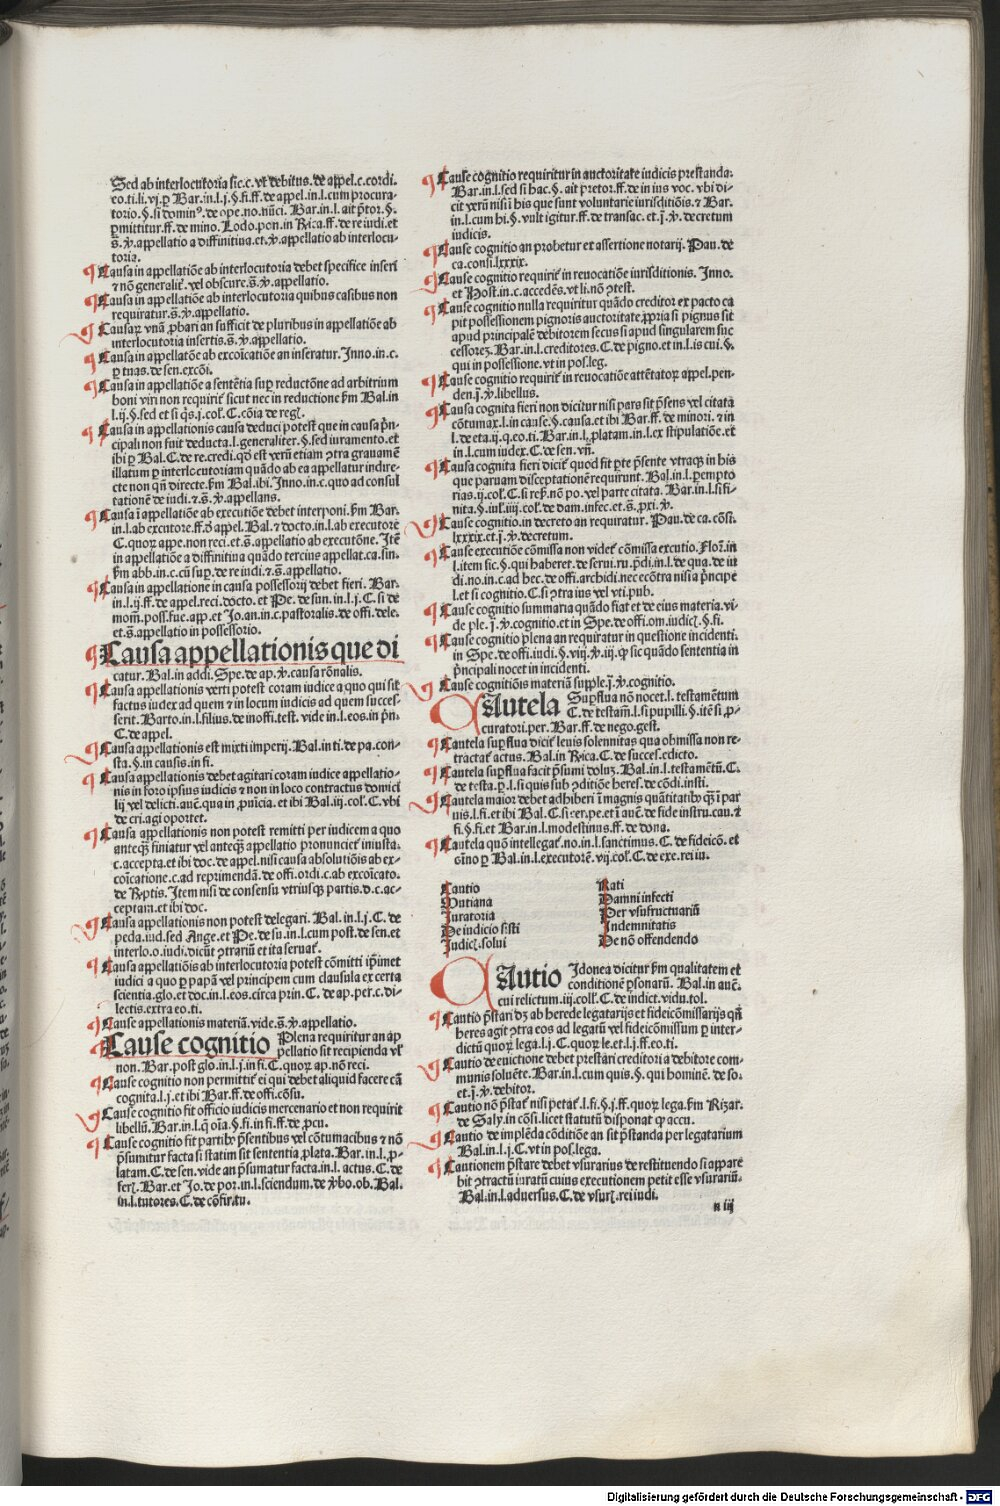 Sed ab interlocutoria sic.c. vt debitus. de appel.c.cordi.
eo.ti.li.vj. ꝑ Bar.in.l.j.§.fi.ff.de appel.in.l.cum procura-
torio.§.si dominꝰ.de ope.no.nūci. Bar.in.l.ait p̄tor.§.
ꝑmittitur.ff.de mino. Lodo.pon.in Rica.ff.de re iudi.et
s̄.v̄.appellatio a diffinitiua.et.v̄.appellatio ab interlocu-
toria.
Causa in appellatiōe ab interlocutoria debet specifice inseri
⁊ nō generalit̉. vel obscure.s̄.v̄.appellatio.
Causa in appellatiōe ab interlocutoria quibus casibus non
requiratur.s̄.v̄.appellatio.
Causaꝝ vnā ꝓbari an sufficit de pluribus in appellatiōe ab
interlocutoria insertis.s̄.v̄.appellatio.
Causa in appellatōe ab excoīcatiōe an inseratur. Inno.in.c.
ꝑ tuas.de sen.excōi.
Causa in appellatiōe a sentētia suꝑ reductōne ad arbitrium
boni viri non requirit̉ sicut nec in reductione ẜm Bal.in
l.ij.§.sed et si q̄s.j.col̉.C.cōia de regl̉.
Causa in appellationis causa deduci potest que in causa p̄n-
cipali non fuit deducta.l.generaliter.§.sed iuramento.et
ibi ꝑ Bal.C.de re.credi.qd̄ est verū etiam ꝯtra grauamē
illatum ꝑ interlocutoriam quādo ab ea appellatur indire-
cte non qn̄ directe.ẜm Bal.ibi.Inno.in.c.quo ad consul
tationē de iudi.⁊.s̄.v̄.appellans.
Causa ī appellatiōe ab executiōe debet interponi.ẜm Bar.
in.l.ab excutore.ff.d̄ appel. Bal.⁊ docto.in.l.ab executorē
C.quoꝝ appe.non reci.et.s̄.appellatio ab executōne. Itē
in appellatiōe a diffinitiua quādo tercius appellat.ca.fin.
ẜm abb.in.c.cū suꝑ.de re iudi.⁊.s̄.appellatio.
Causa in appellatione in causa possessorij debet fieri. Bar.
in.l.ij.ff.de appel.reci.docto.et Pe.de sun.in.l.j.C.si de
mom̄.poss.fue.app.et Jo.an.in.c.pastoralis.de offi.dele.
et.s̄.appellatio in possessorio.
Causa appellationis que di
catur. Bal.in addi. Spe.de ap.v̄.causa rōnalis.
Causa appellationis verti potest coram iudice a quo qui sit
factus iudex ad quem ⁊ in locum iudicis ad quem succes-
serit. Barto.in.l.filius.de inoffi.test. vide in.l.eos.in p̄n.
C.de appel.
Causa appellationis est mixti imperij. Bal.in ti.de pa.con-
sta.§.in causis.in fi.
Causa appellationis debet agitari coram iudice appellatio-
nis in foro ipsius iudicis ⁊ non in loco contractus domici
lij vel delicti.auc̄.qua in ꝓuīcia.et ibi Bal.iij.col̉.C.vbi
de cri.agi oportet.
Causa appellationis non potest remitti per iudicem a quo
anteq̄ꝫ finiatur vel anteq̄ꝫ appellatio pronunciet̉ iniusta.
c.accepta.et ibi doc.de appel.nisi causa absolutiōis ab ex-
coīcatione.c.ad reprimendā.de offi.ordi.c.ab excoīcato.
de Rꝑtis. Item nisi de consensu vtriusqꝫ partis.d.c.ac-
ceptam.et ibi doc.
Causa appellationis non potest delegari. Bal.in.l.j.C.de
ꝑeda.iud.sed Ange.et Pe.de su.in.l.cum post.de sen.et
interlo.o.iudi.dicūt ꝯtrariū et ita seruat̉.
Causa appellatiōis ab interlocutoria potest cōmitti ip̄imet
iudici a quo ꝑ papā vel principem cum clausula ex certa
scientia.glo.et doc.in.l.eos.circa prin.C.de ap.per.c.di-
lectis.extra eo.ti.
Cause appellationis materiā.vide.s̄.v̄.appellatio.
Cause cognitio Plena requiritur an ap
pellatio sit recipienda vl̉
non. Bar.post glo.in.l.j.in fi.C.quoꝝ ap.nō reci.
Cause cognitio non permittit̉ ei qui debet aliquid facere cā
cognita.l.j.et ibi Bar.ff.de offi.cōsu.
Cause cognitio fit officio iudicis mercenario et non requirit
libellū. Bar.in.l.q̄ oīa.§.fi.in fi.ff.de ꝓcu.
Cause cognitio fit partibꝰ p̄sentibus vel cōtumacibus ⁊ nō
p̄sumitur facta si statim sit sententia ꝓlata. Bar.in.l.ꝓ-
latam.C.de sen.vide an p̄sumatur facta.in.l.actus.C.de
ferī. Bar.et Jo.de por.in.l.sciendum.de v̄bo.ob. Bal.
in.l.tutores.C.de cōfir.tu.
Cause cognitio requiritur in auctoritate iudicis prestanda.
Bar.in.l.sed si hac.§.ait pretor.ff.de in ius voc. vbi di-
cit verū nisi ī his que sunt voluntarie iurisditiōis.⁊ Bar.
in.l.cum hi.§.vult igitur.ff.de transac.et.j̄.v̄.decretum
iudicis.
Cause cognitio an probetur et assertione notarij. Pau.de
ca.consi.lxxxix.
Cause cognitio requirit̉ in reuocatiōe iurisditionis. Inno.
et Host.in.c.accedēs.vt li.nō ꝯtest.
Cause cognitio nulla requiritur quādo creditor ex pacto ca
pit possessionem pignoris auctoritate.ꝓpria si pignus sit
apud principalē debitorem secus si apud singularem suc
cessoreꝫ. Bar.in.l.creditores.C.de pigno.et in.l.is cui.§.
qui in possessione.vt in pos.leg.
Cause cognitio requirit̉ in reuocatiōe attētatoꝝ appel.pen-
den.j̄.v̄.libellus.
Causa cognita fieri non dicitur nisi pars sit p̄sens vel citata
cōtumax.l.in cause.§.causa.et ibi Bar.ff.de minori.⁊ in
l.de eta.ij.q.eo.ti. Bar.in.l.platam.in.l.ex stipulatiōe.et
in.l.cum iudex.C.de sen. vn̄.
Causa cognita fieri dicit̉ quod fit ꝑte p̄sente vtraqꝫ in his
que paruam disceptationē requirunt. Bal.in.l.ꝑempto
rias.ij.col̉.C.si rep̄.nō po.vel parte citata. Bar.in.l.si fi-
nita.§.iul̉.iiij.col̉.de dam.infec.et.s̄.ꝓxi.v̄.
Cause cognitio.in decreto an requiratur. Pau.de ca.cōsi.
lxxxix.et.j̄.v̄.decretum.
Cause executiōe cōmissa non videt̉ cōmissa excutio. Flor̄.in
l.item sic.§.qui haberet.de serui.ru.p̄di.in.l.de qua.de iu
di.no.in.c.ad hec.de offi.archidi.nec ecōtra nisi a p̄ncipe
l.et si cognitio.C.si ꝯtra ius vel vti.pub.
Cause cognitio summaria quādo fiat et de eius materia.vi-
de ple.j̄.v̄.cognitio.et in Spe.de offi.om.iudic̉.§.fi.
Cause cognitio plena an requiratur in questione incidenti.
in Spe.de offi.iudi.§.viij.v̄.iij.ꝙ sic quādo sententia in
p̄ncipali nocet in incidenti.
Cause cognitiōis materiā supple.j̄.v̄.cognitio.
CAutela Suꝑflua nō nocet.l. testamētum
C.de testam̄.l.si pupilli.§.itē si ꝓ-
curatori.per. Bar.ff.de nego.gest.
Cautela suꝑflua dicit̉ leuis solennitas qua obmissa non re-
tractat̉ actus. Bal.in Rica.C.de succes.edicto.
Cautela suꝑflua facit p̄sumi doluꝫ. Bal.in.l.testamētū.C.
de testa.ꝑ.l.si quis sub ꝯditiōe heres.de cōdi.insti.
Cautela maior debet adhiberi ī magnis quātitatibꝰ q̄ꝫ ī par
uis.l.fi.et ibi Bal.C.si cer.pe.et ī auc̄.de fide instru.cau.⁊
fi.§.fi.et Bar.in.l.modestinus.ff.de dona.
Cautela quō intellegat̉.no.in.l.sanctimus.C.de fideicō.et
ḡn̄o ꝑ Bal.in.l.executorē.vij.col̉.C.de exe.rei iu.
Cautio
Mutiana
Iuratoria
De iudicio sisti
Judic̉.solui
Rati
Damni infecti
Per vsufructuariū
Indemnitatis
De nō offendendo
CAutio Idonea dicitur ẜm qualitatem et
conditionē ꝑsonarū. Bal.in auc̄.
cui relictum.iij.coll̉.C.de indict.vidu.tol.
Cautio p̄stari dꝫ ab herede legatarijs et fideicōmissarijs qn̄
heres agit ꝯtra eos ad legatū vel fideicōmissum ꝑ inter-
dictū quoꝝ lega.l.j.C.quoꝝ le.et.l.j.ff.eo.ti.
Cautio de euictione debet prestari creditori a debitore com-
munis soluēte. Bar.in.l.cum quis.§.qui hominē.de so.
et.j̄.v̄.debitor.
Cautio nō p̄stat̉ nisi petat̉.l.fi.§.j.ff.quoꝝ lega.ẜm Rizar.
de Saly.in cōsi.licet statutū disponat ꝙ accu.
Cautio de implēda cōditiōe an sit p̄standa per legatarium
Bal.in.l.j.C.vt in pos.lega.
Cautionem p̄stare debet vsurarius de restituendo si appare
bit ꝯtractū iuratū cuius executionem petit esse vsurariū.
Bal.in.l.aduersus.C.de vsur̉.rei iudi.
n iij
Digitalisierung gefördert durch die Deutsche Forschungsgemeinschaft - DFG